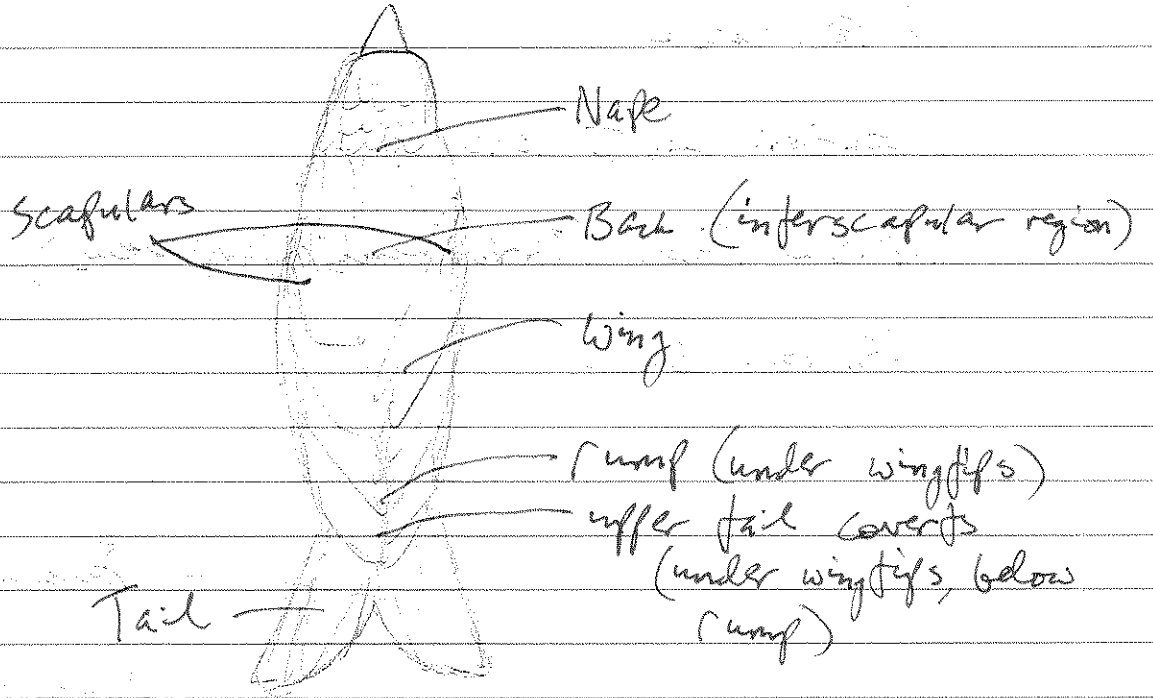 Nape
Scapulars
Back (interscapular region)
Wing
rump (under wingtips)
upper tail coverts
(under wingtips, below
rump)
Tail